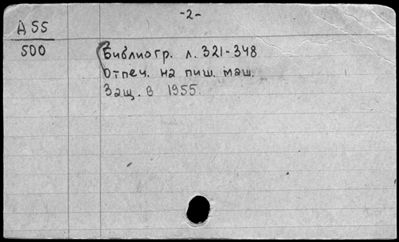 -2-
А 55
500
Библиогр. л. 321-348
Отпеч. на пиш. маш.
Защ. в 1955.